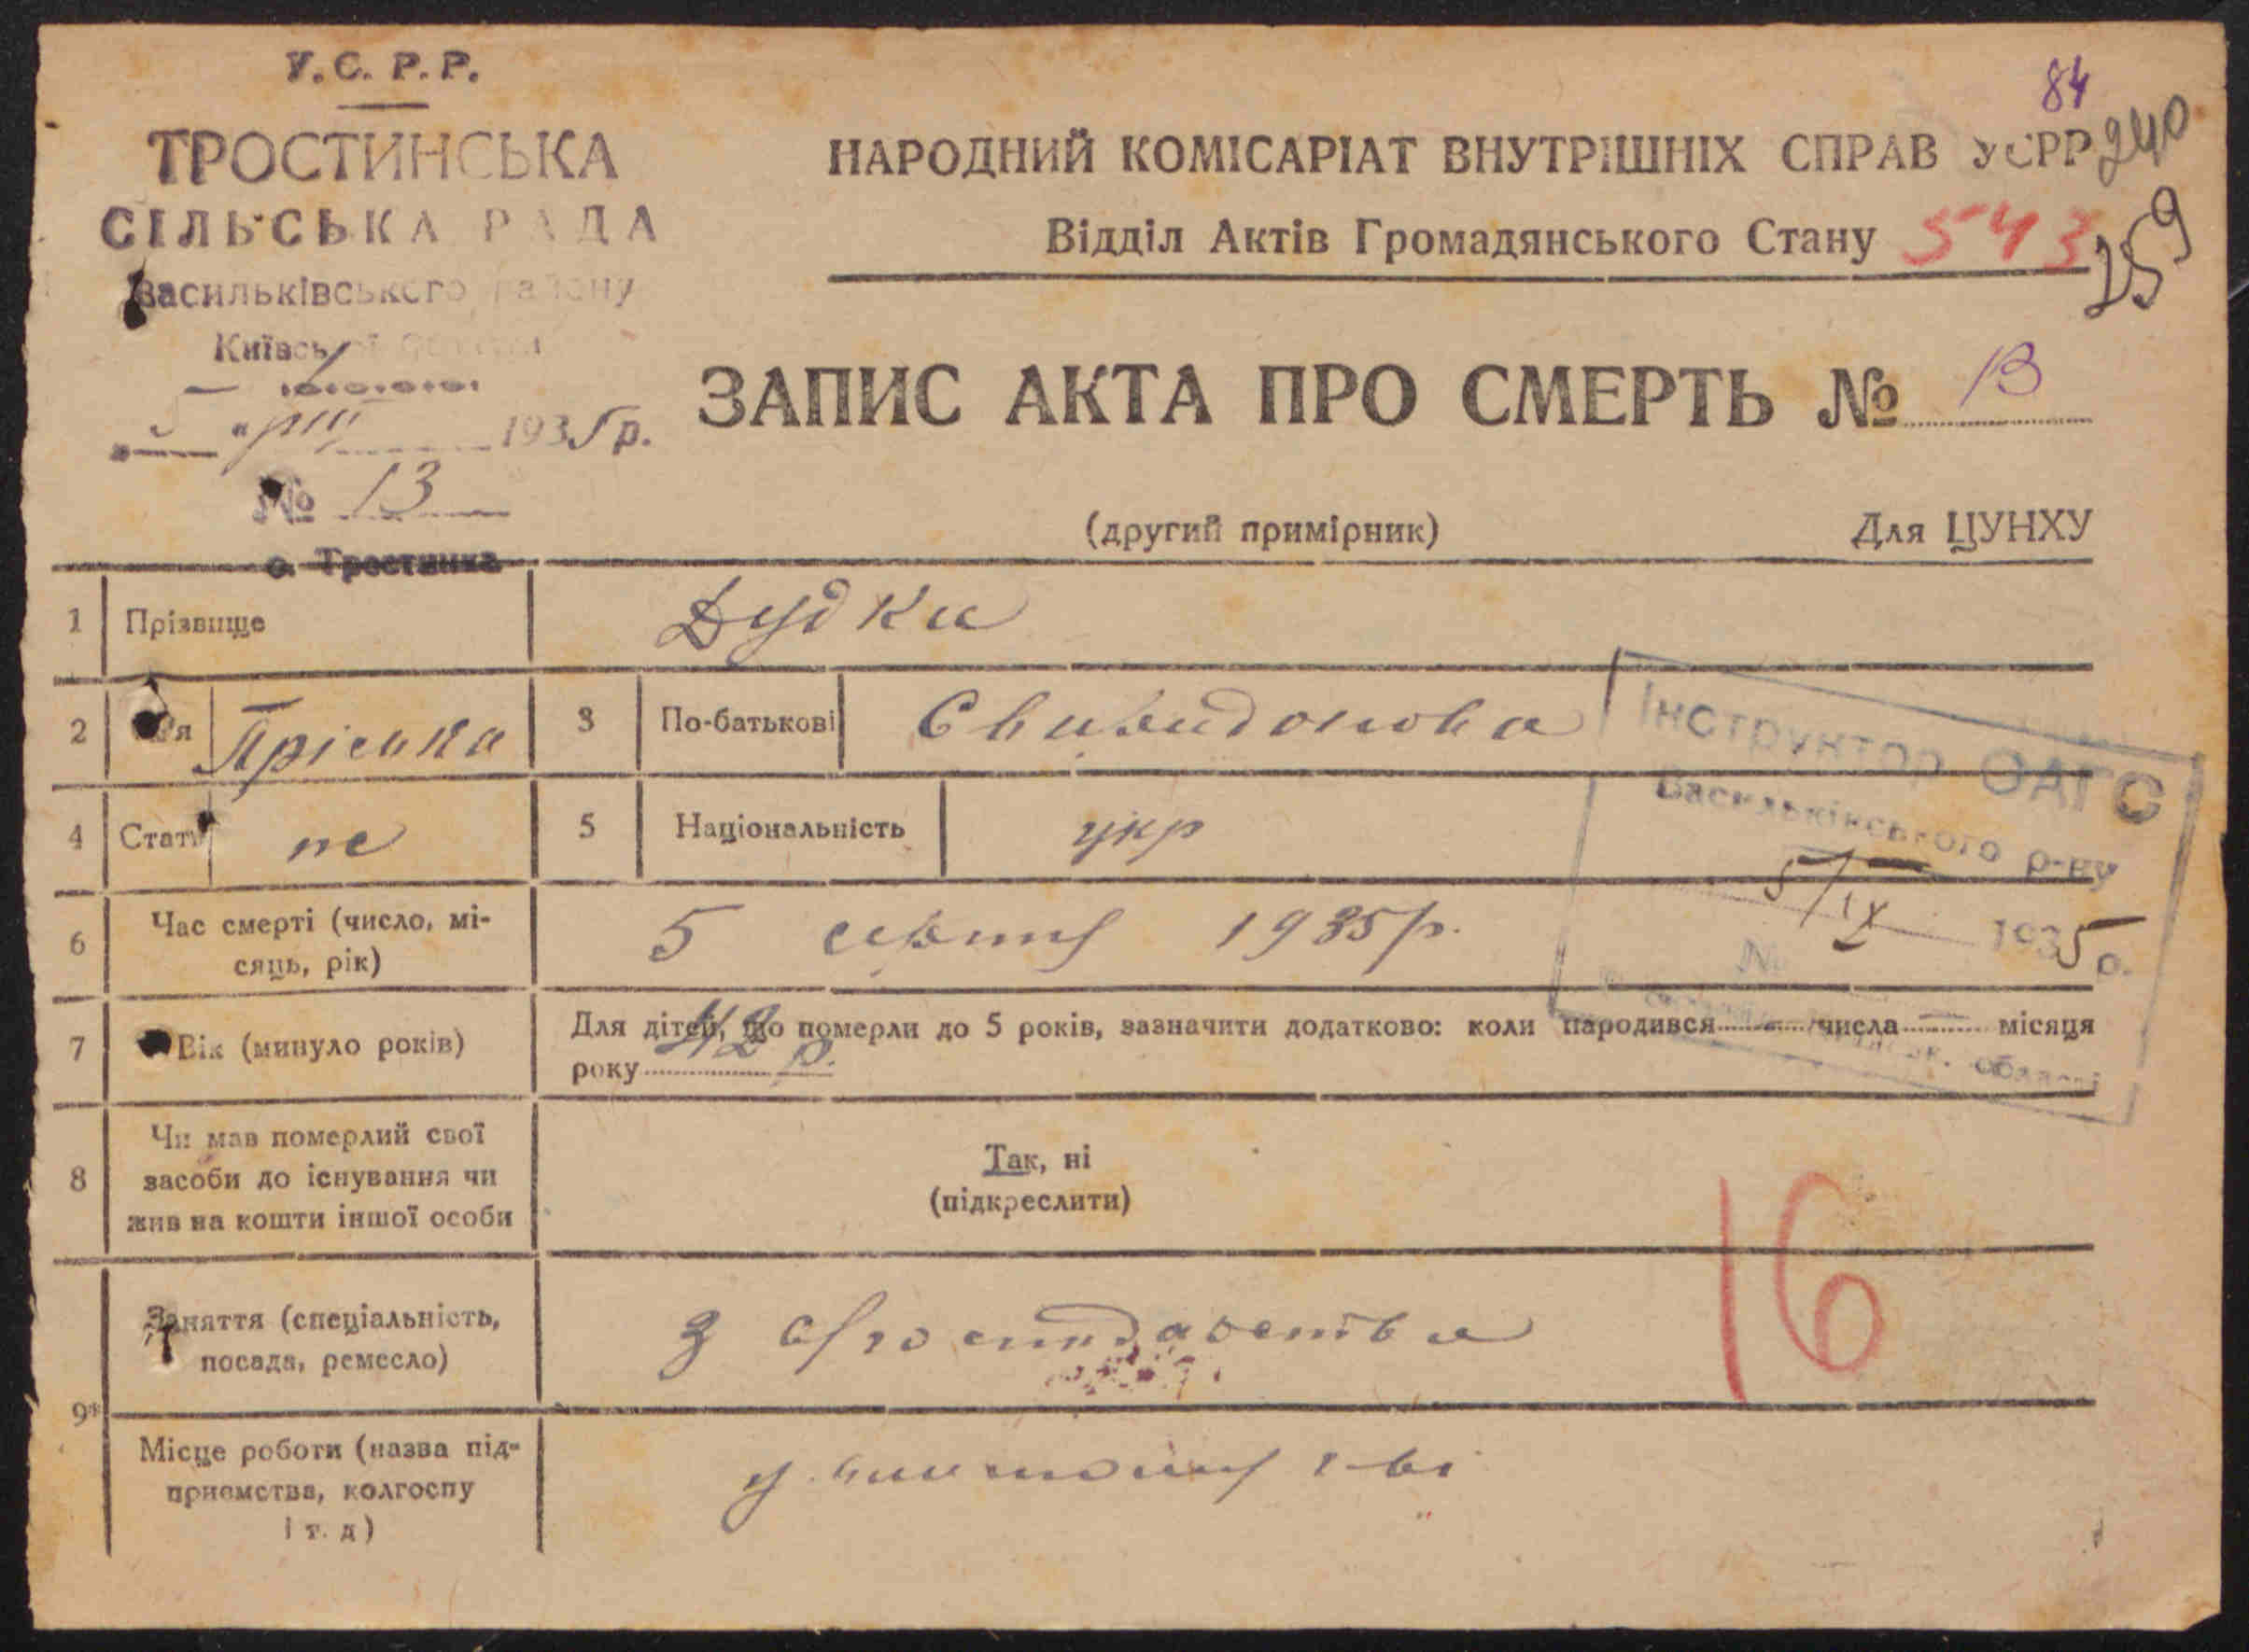 У.С.Р.Р.
ТРОСТИНСЬКА
СІЛЬСЬКА РАДА
Васильківського району
Київської
5 " VIII 1935 р.
№ 13
с. Тростинка
84
240
НАРОДНИЙ КОМІСАРІАТ ВНУТРІШНІХ СПРАВ УСРР
Відділ Актів Громадянського Стану 543
259
ЗАПИС АКТА ПРО СМЕРТЬ № 13
(другий примірник) Для ЦУНХУ
1 Прізвище Дудка
2 Ім'я Пріська 3 По-батькові Свиридонова
Інструктор ОАГС
Васильківського р-ну
5/IX 1935 р.
№
області
4 Стать 5 Національність укр
6 Час смерті (число, мі-
сяць, рік) 5 серпня 1935 р.
7 Вік (минуло років) 42 р.
Для дітей, що померли до 5 років, зазначити додатково: коли народився — числа — місяця
року
8 Чи мав померлий свої
засоби до існування чи
жив на кошти іншої особи
Так, ні
(підкреслити)
16
9* Заняття (спеціальність,
посада, ремесло) З с/господарства
Місце роботи (назва під-
приємства, колгоспу
і т. д) у